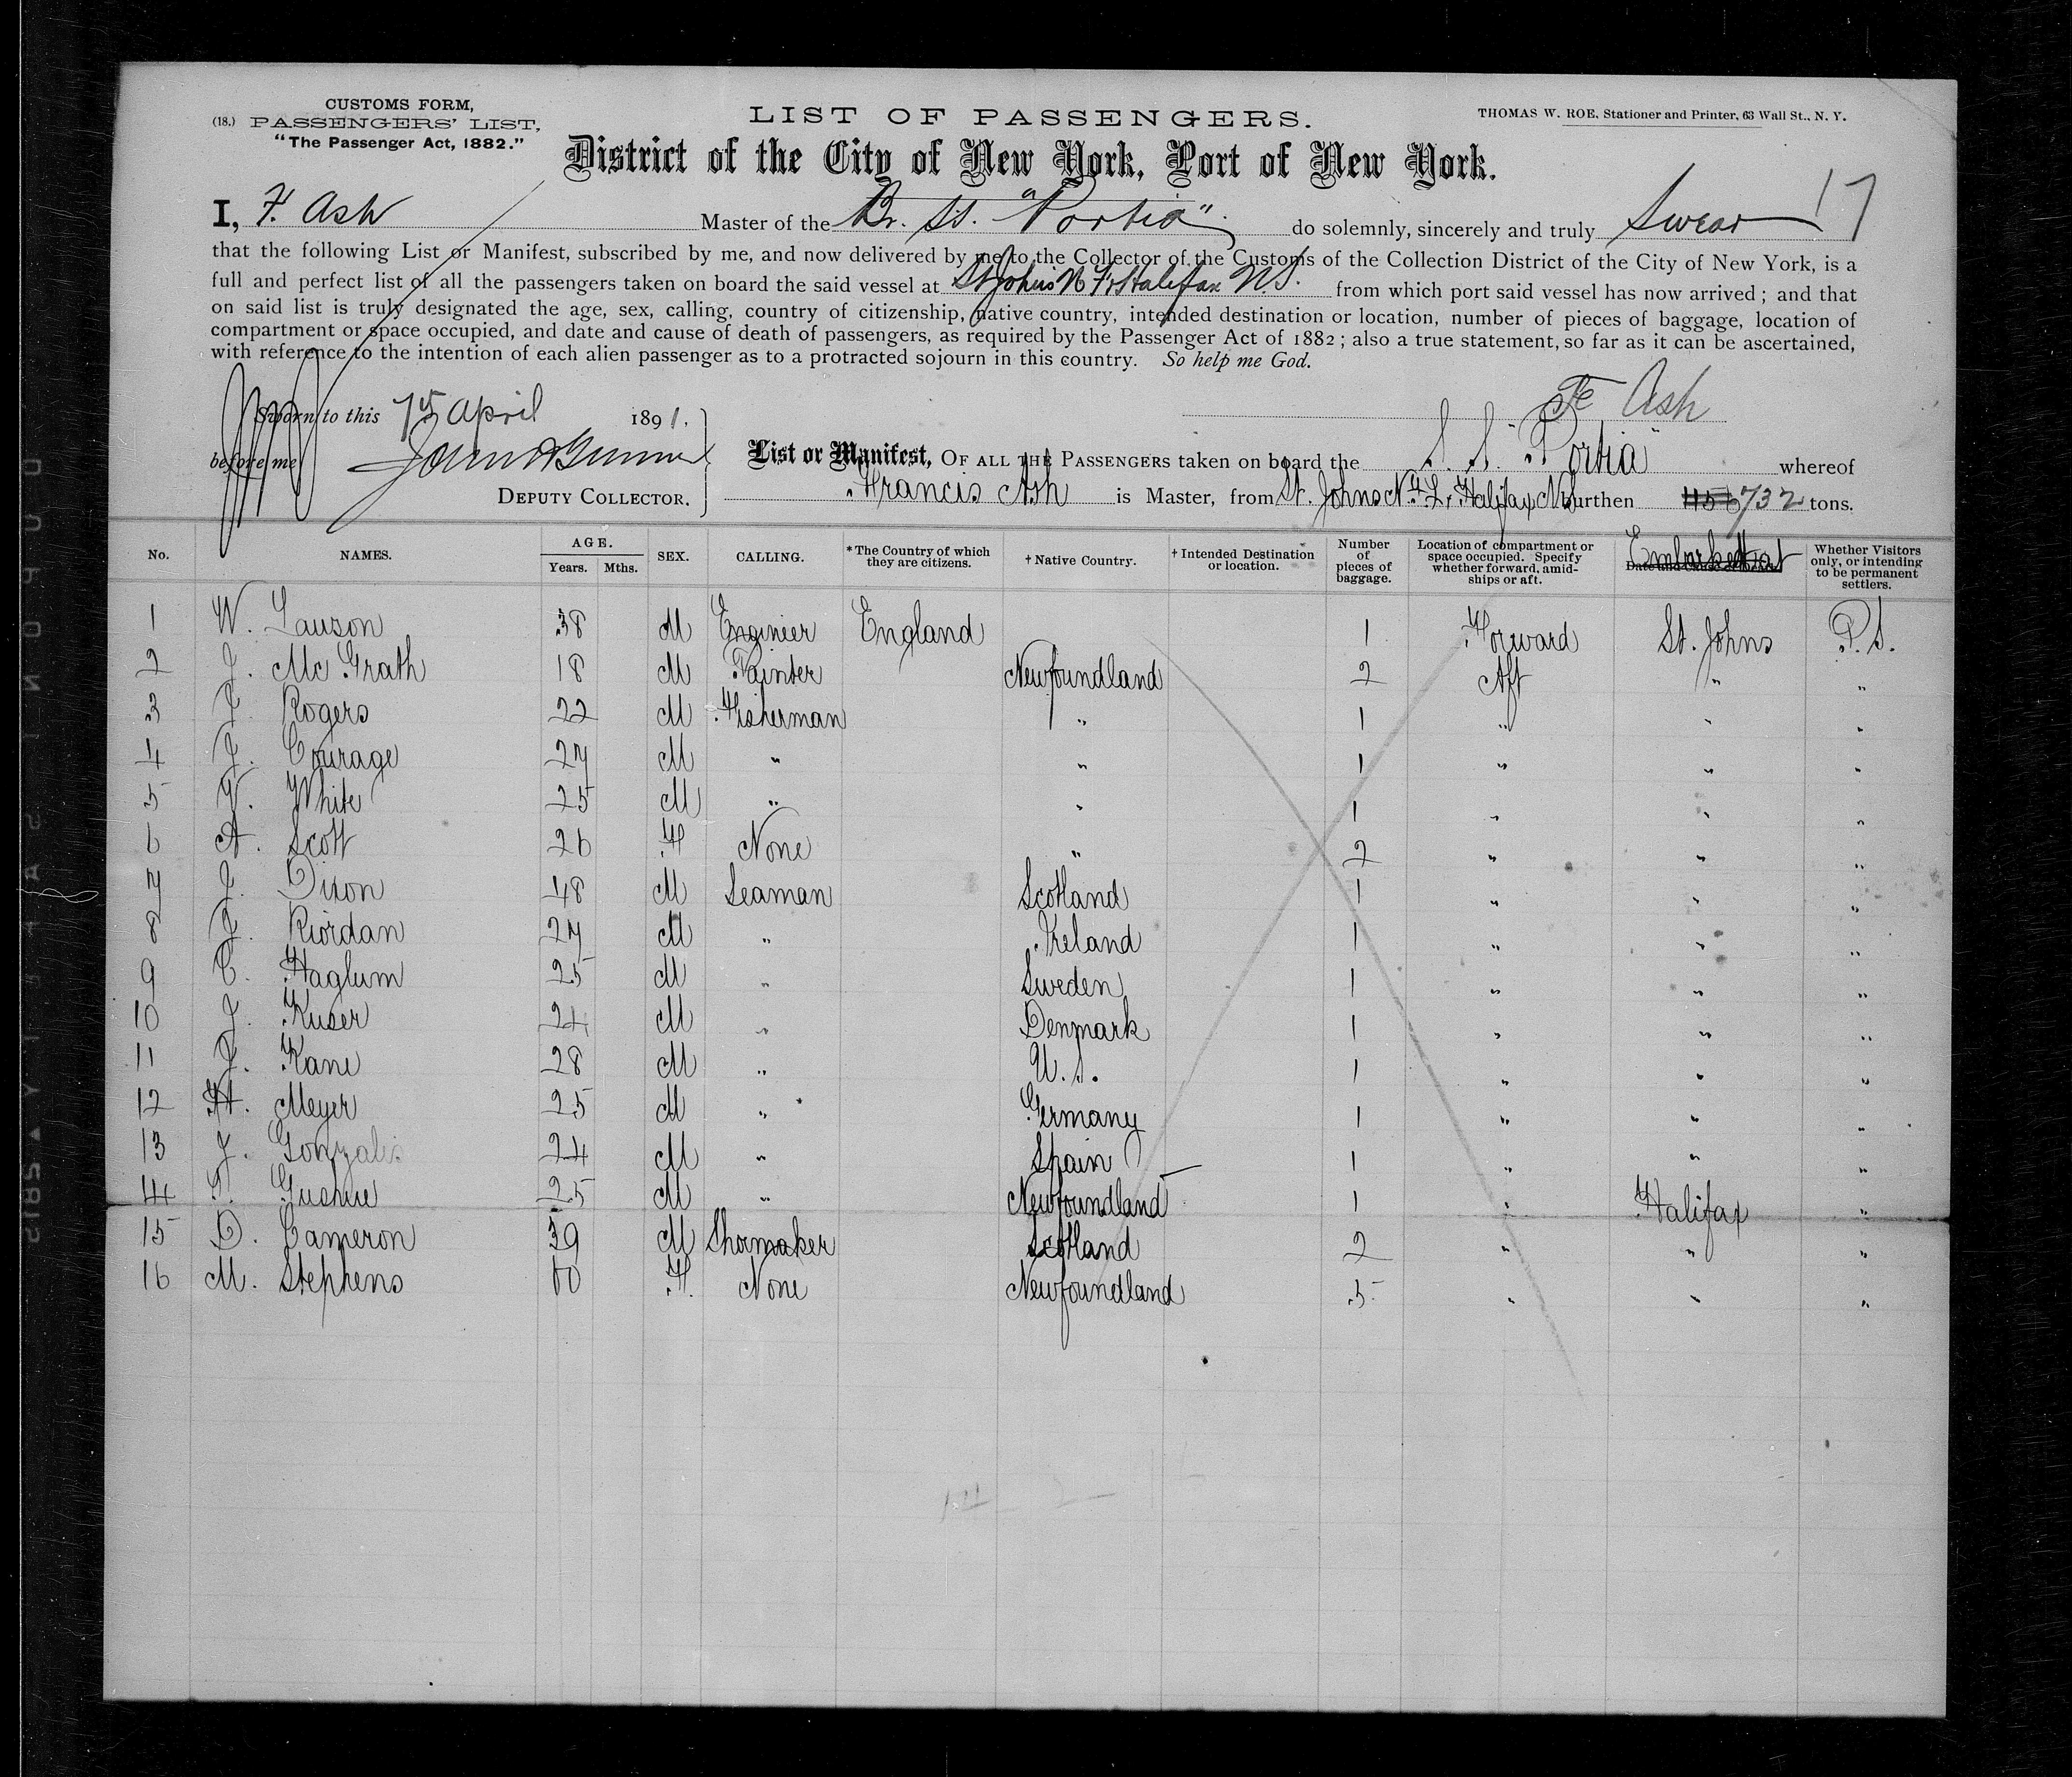 CUSTOMS FORM,
(18.) PASSENGERS' LIST,
"The Passenger Act, 1882."
LIST OF PASSENGERS.
THOMAS W. ROE, Stationer and Printer, 63 Wall St., N. Y.
District of the City of New York, Port of New York.
17
I, F. Ash Master of the Br. SS. "Portia" do solemnly, sincerely and truly Swear
that the following List or Manifest, subscribed by me, and now delivered by me to the Collector of the Customs of the Collection District of the City of New York, is a
full and perfect list of all the passengers taken on board the said vessel at St Johns N F & Halifax N.S. from which port said vessel has now arrived; and that
on said list is truly designated the age, sex, calling, country of citizenship, native country, intended destination or location, number of pieces of baggage, location of
compartment or space occupied, and date and cause of death of passengers, as required by the Passenger Act of 1882; also a true statement, so far as it can be ascertained,
with reference to the intention of each alien passenger as to a protracted sojourn in this country. So help me God.
Sworn to this 7th April 1891.
Ash
before me
DEPUTY COLLECTOR.
List or Manifest, OF ALL THE PASSENGERS taken on board the S. S. "Portia" whereof
Francis Ash is Master, from St. Johns N.F.L. & Halifax NS burthen 732 tons.
No. NAMES. AGE. Years. Mths. SEX. CALLING. *The Country of which they are citizens. †Native Country. †Intended Destination or location. Number of pieces of baggage. Location of compartment or space occupied. Specify whether forward, amidships or aft. Embarked at Whether Visitors only, or intending to be permanent settlers.
1 W. Lauson 38 M Engineer England 1 Forward St. Johns P.S.
2 J. Mc Grath 18 M Painter Newfoundland 2 Aft " "
3 J. Rogers 22 M Fisherman " 1 " " "
4 J. Courage 27 M " " 1 " " "
5 W. White 25 M " " 1 " " "
6 A. Scott 26 F None " 2 " " "
7 J. Dixon 48 M Seaman Scotland 1 " " "
8 J. Riordan 27 M " Ireland 1 " " "
9 C. Haglum 25 M " Sweden 1 " " "
10 J. Kuser 24 M " Denmark 1 " " "
11 J. Kane 28 M " U. S. 1 " " "
12 H. Meyer 25 M " Germany 1 " " "
13 J. Gonzalis 24 M " Spain 1 " " "
14 Gushue 25 M " Newfoundland 1 " Halifax "
15 D. Cameron 39 M Shoemaker Scotland 2 " " "
16 M. Stephens 60 F. None Newfoundland 5 " " "